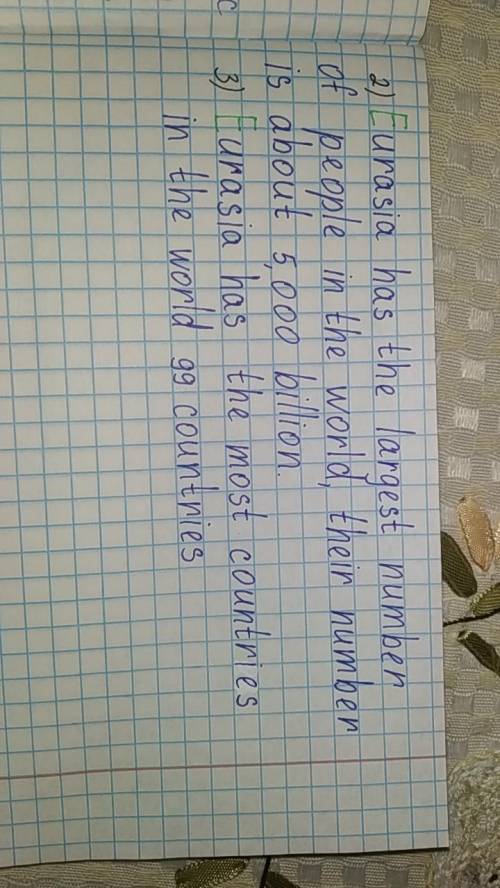 2) Eurasia has the largest number
of people in the world, their number
is about 5,000 billion.
3) Eurasia has the most countries
in the world 99 countries